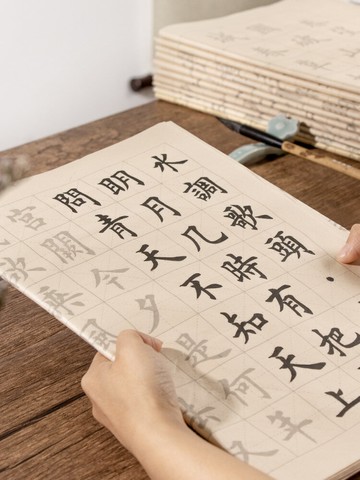 水調歌頭·
明月几時有把
問青天不知天上
宮闕今夕是何年
欲乘風又